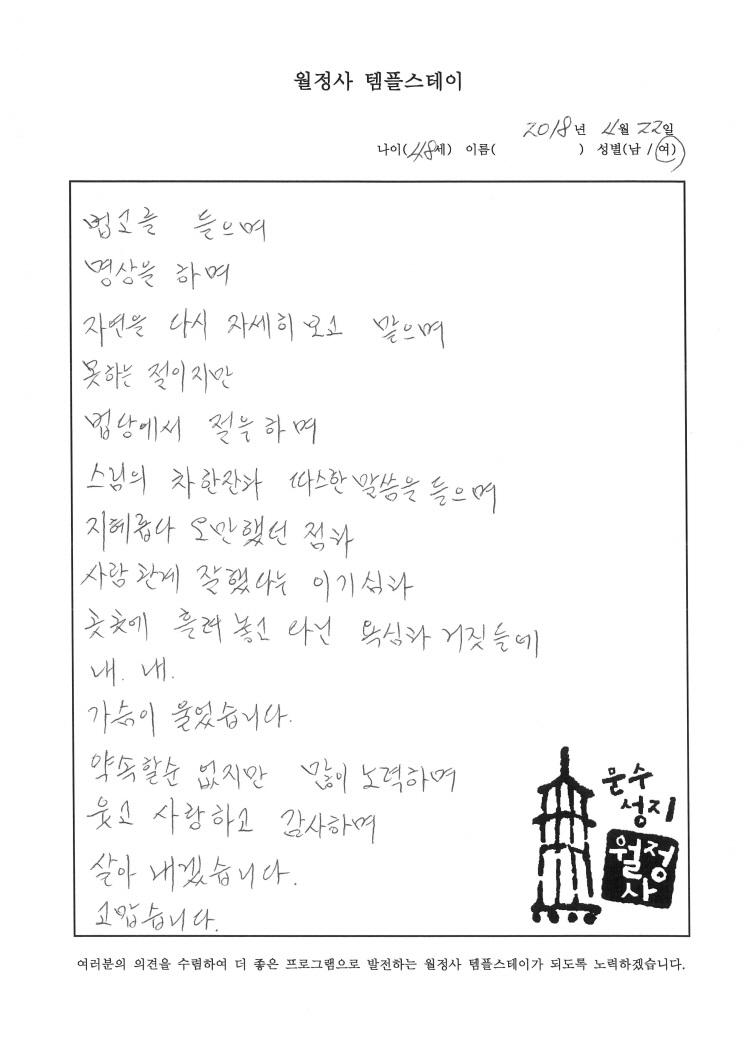 월정사 템플스테이
2018년 4월 22일
나이(48세) 이름( ) 성별(남 / 여)
법고를 들으며
명상을 하며
자연을 다시 자세히 보고 맡으며
못하는 절이지만
법당에서 절을 하며
스님의 차 한잔과 따스한 말씀을 들으며
지혜롭다 오만했던 점과
사람 관계 잘했다는 이기심과
곳곳에 흘려 놓고 다닌 욕심과 거짓들에
내. 내.
가슴이 울었습니다.
약속할순 없지만 많이 노력하며
웃고 사랑하고 감사하며
살아 내겠습니다.
고맙습니다.
문수
성지
월정
사
여러분의 의견을 수렴하여 더 좋은 프로그램으로 발전하는 월정사 템플스테이가 되도록 노력하겠습니다.